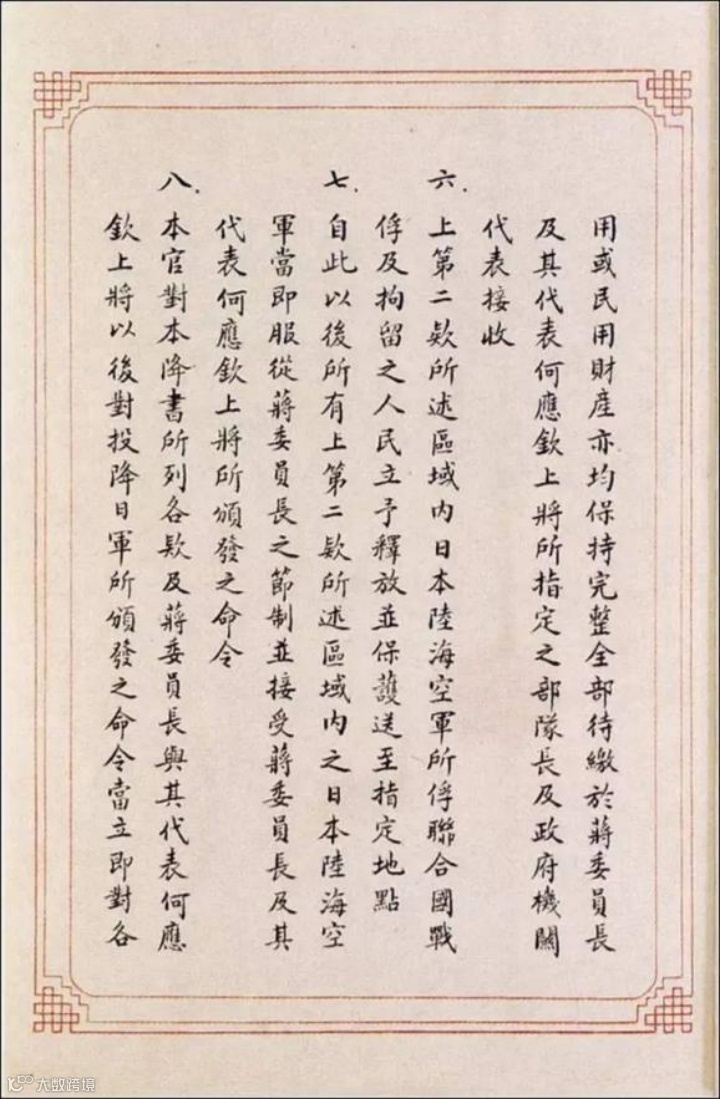 用或民用財產亦均保持完整全部待繳於蔣委員長
及其代表何應欽上將所指定之部隊長及政府機關
代表接收
六．上第二欵所述區域內日本陸海空軍所俘聯合國戰
俘及拘留之人民立予釋放並保護送至指定地點
七．自此以後所有上第二欵所述區域內之日本陸海空
軍當即服從蔣委員長之節制並接受蔣委員長及其
代表何應欽上將所頒發之命令
八．本官對本降書所列各欵及蔣委員長與其代表何應
欽上將以後對投降日軍所頒發之命令當立即對各
大数跨境